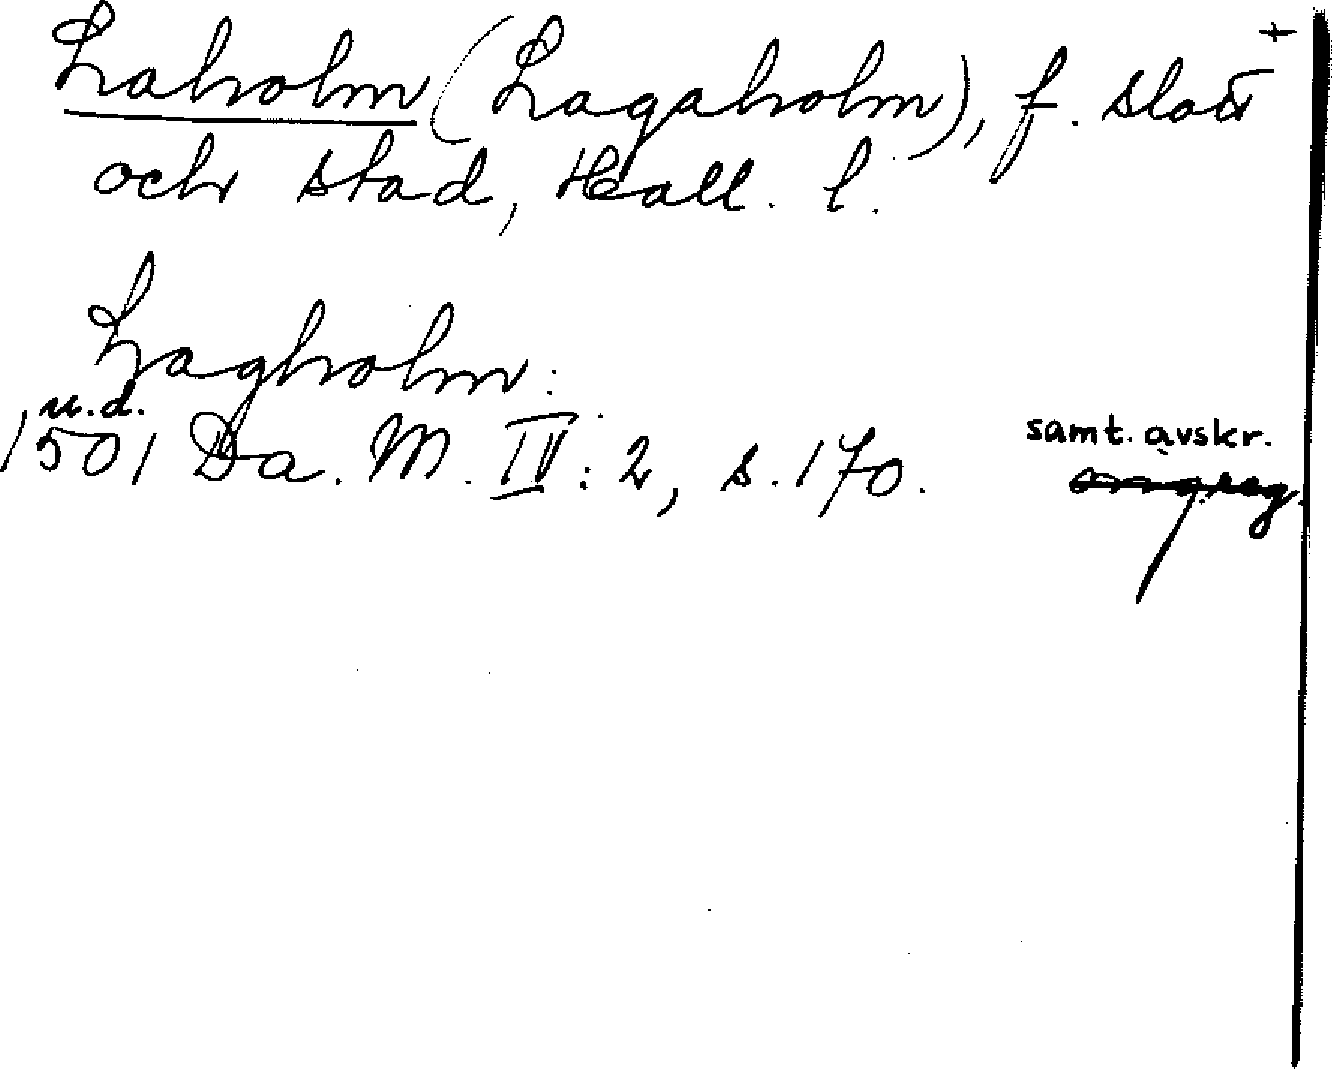 +
Laholm (Lagaholm), f. slott
och stad, Hall. l.
Lagholm:
u.d.
1501 Da. M. IV: 2, s. 170.
samt. avskr.